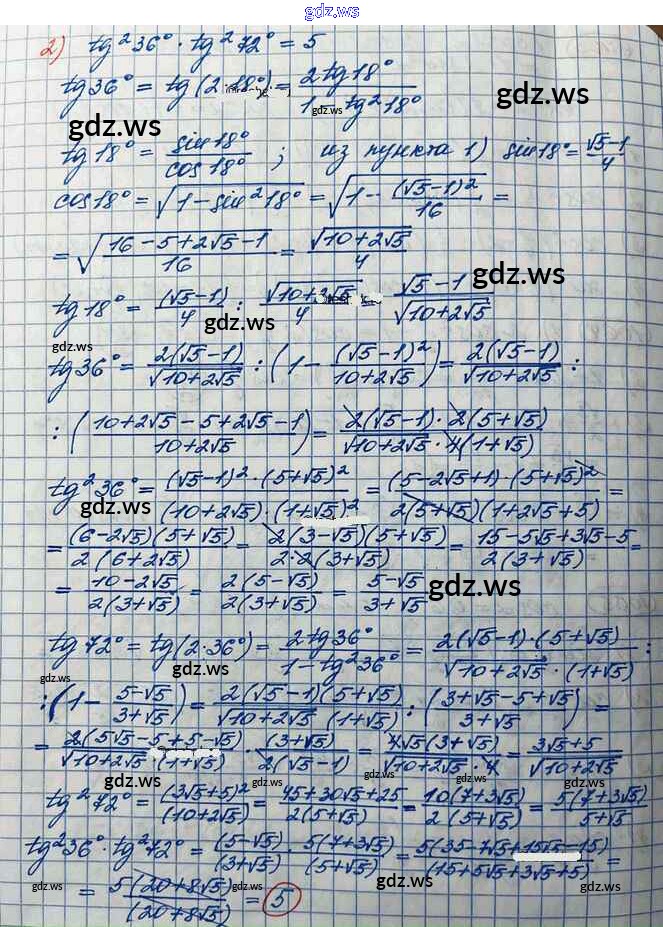 gdz.ws
2) tg²36° · tg²72° = 5
tg 36° = tg(2·18°) = 2tg18° / 1 - tg²18°
gdz.ws gdz.ws gdz.ws
tg 18° = sin18° / cos18° ; из пункта 1) sin18° = √5-1 / 4
cos18° = √(1 - sin²18°) = √(1 - (√5-1)² / 16) =
= √(16-5+2√5-1 / 16) = √(10+2√5) / 4
gdz.ws
tg 18° = (√5-1) / 4 : √(10+2√5) / 4 = √5-1 / √(10+2√5)
gdz.ws
gdz.ws
tg 36° = 2(√5-1) / √(10+2√5) : (1 - (√5-1)² / 10+2√5) = 2(√5-1) / √(10+2√5) :
: (10+2√5-5+2√5-1 / 10+2√5) = 2(√5-1)·2(5+√5) / √(10+2√5)·4(1+√5)
tg²36° = (√5-1)²·(5+√5)² / (10+2√5)·(1+√5)² = (5-2√5+1)·(5+√5)² / 2(5+√5)(1+2√5+5) =
gdz.ws gdz.ws
= (6-2√5)(5+√5) / 2(6+2√5) = 2(3-√5)(5+√5) / 2·2(3+√5) = 15-5√5+3√5-5 / 2(3+√5) =
= 10-2√5 / 2(3+√5) = 2(5-√5) / 2(3+√5) = 5-√5 / 3+√5
gdz.ws
tg 72° = tg(2·36°) = 2tg36° / 1-tg²36° = 2(√5-1)·(5+√5) / √(10+2√5)·(1+√5) :
gdz.ws gdz.ws
: (1 - 5-√5 / 3+√5) = 2(√5-1)(5+√5) / √(10+2√5) (1+√5) : (3+√5-5+√5 / 3+√5) =
= 2(5√5-5+5-√5) / √(10+2√5)·(1+√5) · (3+√5) / 2(√5-1) = 4√5(3+√5) / √(10+2√5)·4 = 3√5+5 / √(10+2√5)
gdz.ws gdz.ws gdz.ws
tg²72° = (3√5+5)² / (10+2√5) = 45+30√5+25 / 2(5+√5) = 10(7+3√5) / 2(5+√5) = 5(7+3√5) / 5+√5
tg²36°·tg²72° = (5-√5) / (3+√5) · 5(7+3√5) / (5+√5) = 5(35-7√5+15√5-15) / (15+5√5+3√5+5) =
gdz.ws gdz.ws gdz.ws gdz.ws
= 5(20+8√5) / (20+8√5) = 5